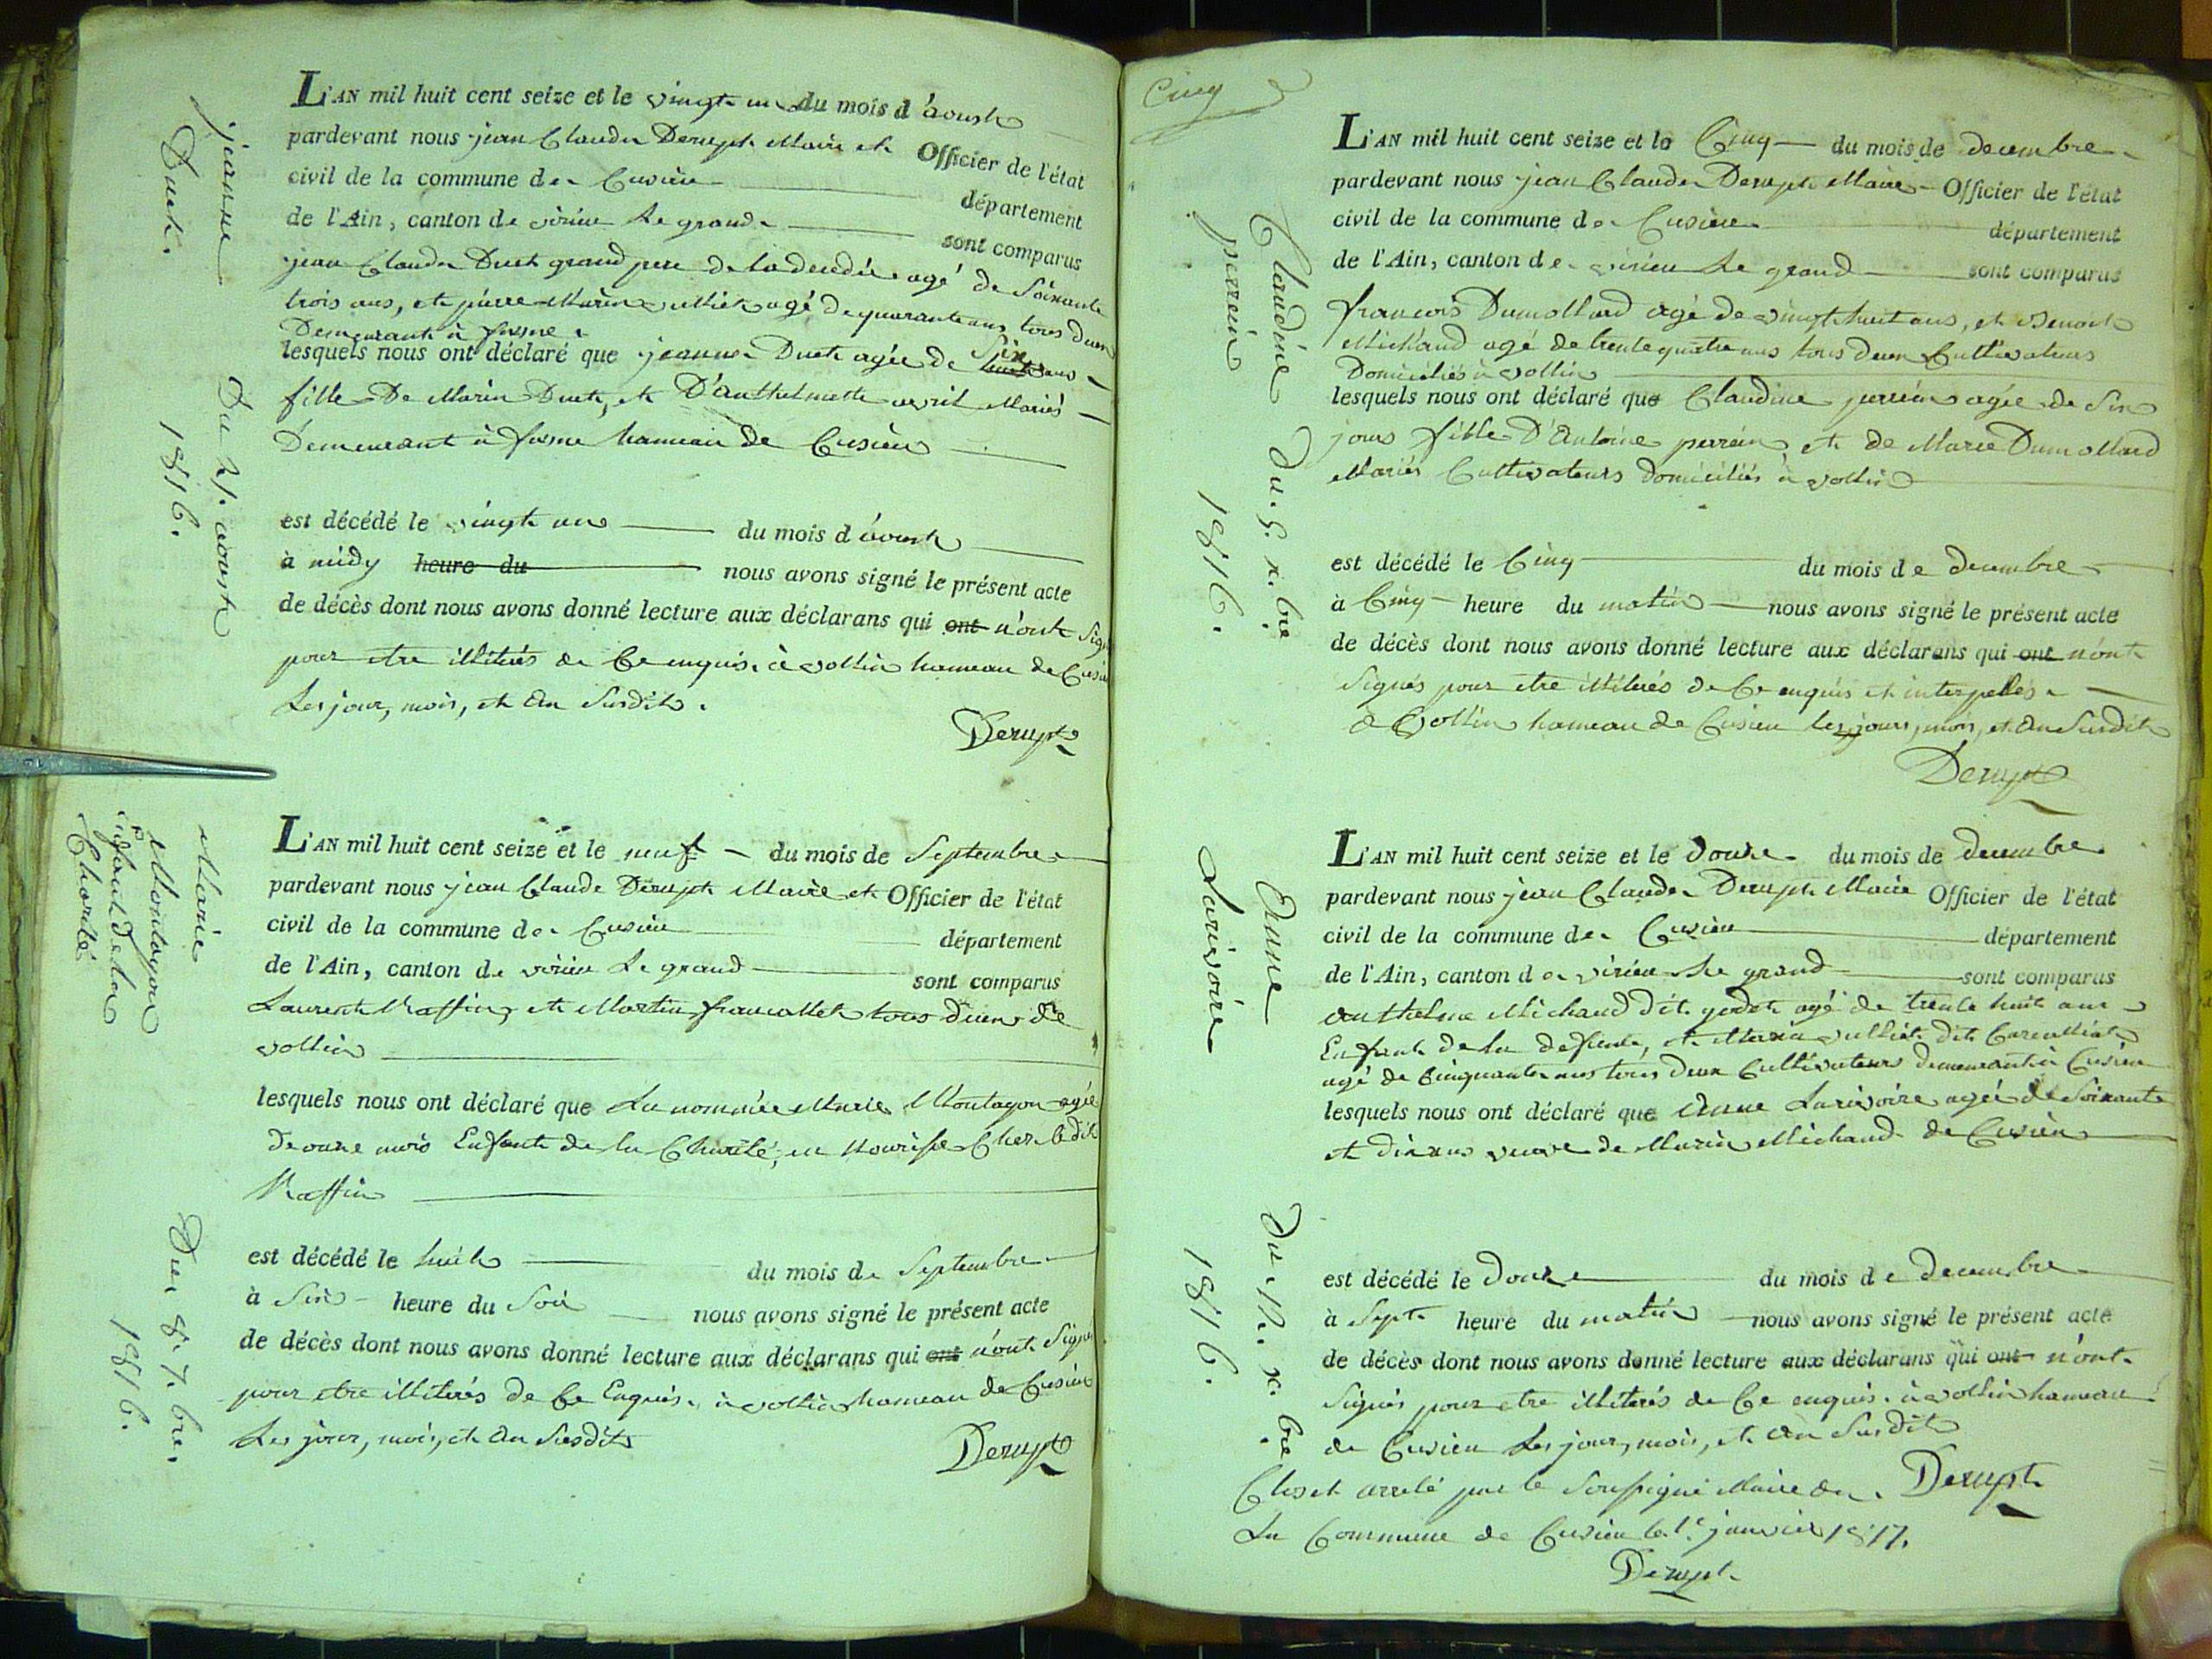 jeanne
Duet.
Du 21. aoust
1816.
L'AN mil huit cent seize et le vingt un du mois d'aoust
pardevant nous jean Claude Derupt Maire et Officier de l'état
civil de la commune de Cusieu département
de l'Ain, canton de virieu Le grand sont comparus
jean Claude Duet grand pere de la decedée agé de Soixante
trois ans, et pierre Marin vulliet agé de quarante ans tous deux
Demeurant à
lesquels nous ont déclaré que jeanne Duet agée de Six ans
fille De Marin Duet, et D'anthelmette avril Mariés
Demeurant à hameau de Cusieu
est décédé le vingt un du mois d'aoust
à midy heure du nous avons signé le présent acte
de décès dont nous avons donné lecture aux déclarans qui ont n'ont Signé
pour etre illiterés de Ce enquis. à vollin hameau de Cusieu
Les jour, mois, et an Susdits.
Derupt
Marie
Montagon
enfant de la
Charité
Du 8. 7.bre.
1816.
L'AN mil huit cent seize et le neuf du mois de Septembre
pardevant nous jean Claude Derupt Maire et Officier de l'état
civil de la commune de Cusieu département
de l'Ain, canton de virieu Le grand sont comparus
Laurent Raffin, et Martin francallet tous deux de
vollin
lesquels nous ont déclaré que La nommée Marie Montagon agée
de onze mois Enfant de la Charité, en Nourisse Chez ledit
Raffin
est décédé le huit du mois de Septembre
à Six heure du Soir nous avons signé le présent acte
de décès dont nous avons donné lecture aux déclarans qui ont n'ont Signé
pour etre illiterés de Ce Enquis. à vollin hameau de Cusieu
Les jour, mois, et an Susdits
Derupt
Cinq
Claudine
perrein
Du. 5. x.bre
1816.
L'AN mil huit cent seize et le Cinq du mois de decembre
pardevant nous jean Claude Derupt Maire Officier de l'état
civil de la commune de Cusieu département
de l'Ain, canton de virieu Le grand sont comparus
francois Dumollard agé de vingt huit ans, et Benoit
Michaud agé de trente quatre ans tous deux Cultivateurs
Domiciliés à vollin
lesquels nous ont déclaré que Claudine perrein agée de Six
jours fille D'Antoine perrein, et de Marie Dumollard
Mariés Cultivateurs domiciliés à vollin
est décédé le Cinq du mois de decembre
à Cinq heure du matin nous avons signé le présent acte
de décès dont nous avons donné lecture aux déclarans qui ont n'ont
Signés pour etre illiterés de Ce enquis et interpellés.
à vollin hameau de Cusieu les jours, mois, et an Susdits
Derupt
Anne
Larivoire
Du. 12. x.bre
1816.
L'AN mil huit cent seize et le douze du mois de decembre
pardevant nous jean Claude Derupt Maire Officier de l'état
civil de la commune de Cusieu département
de l'Ain, canton de virieu Le grand sont comparus
anthelme Michaud dit agé de trente huit ans
Enfant de la defunte, et Marin vulliet dit
agé de Cinquante ans tous deux Cultivateurs demeurant à Cusieu
lesquels nous ont déclaré que Anne Larivoire agée de Soixante
et dix ans veuve de Marin Michaud de Cusieu
est décédé le douze du mois de decembre
à Sept heure du matin nous avons signé le présent acte
de décès dont nous avons donné lecture aux déclarans qui ont n'ont
Signés pour etre illiterés de Ce enquis. à vollin hameau
de Cusieu Les jour, mois, et an Susdits
Derupt
Clos et arreté par le Soussigné Maire de
La Commune de Cusieu le 1.er janvier 1817.
Derupt